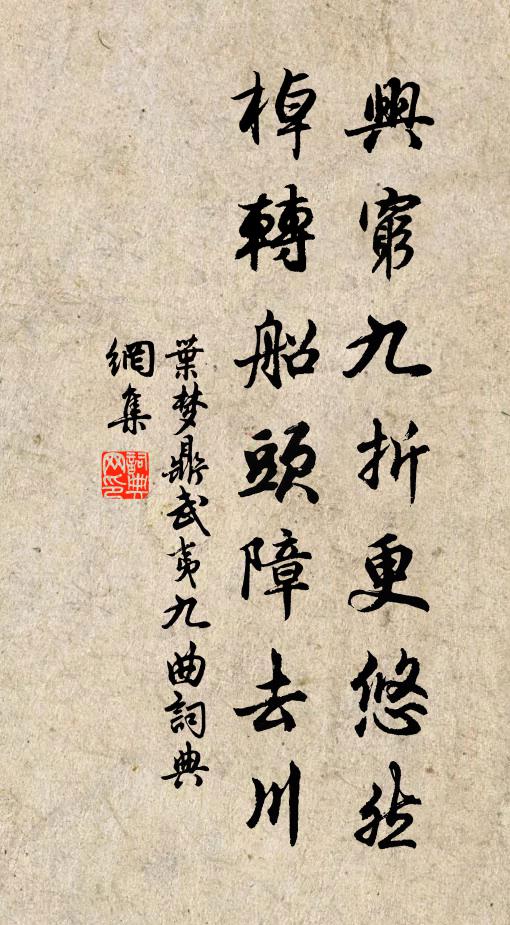 興窮九折更悠然
棹轉船頭障去川
葉梦鼎武夷九曲詞典
網集
詞典網印